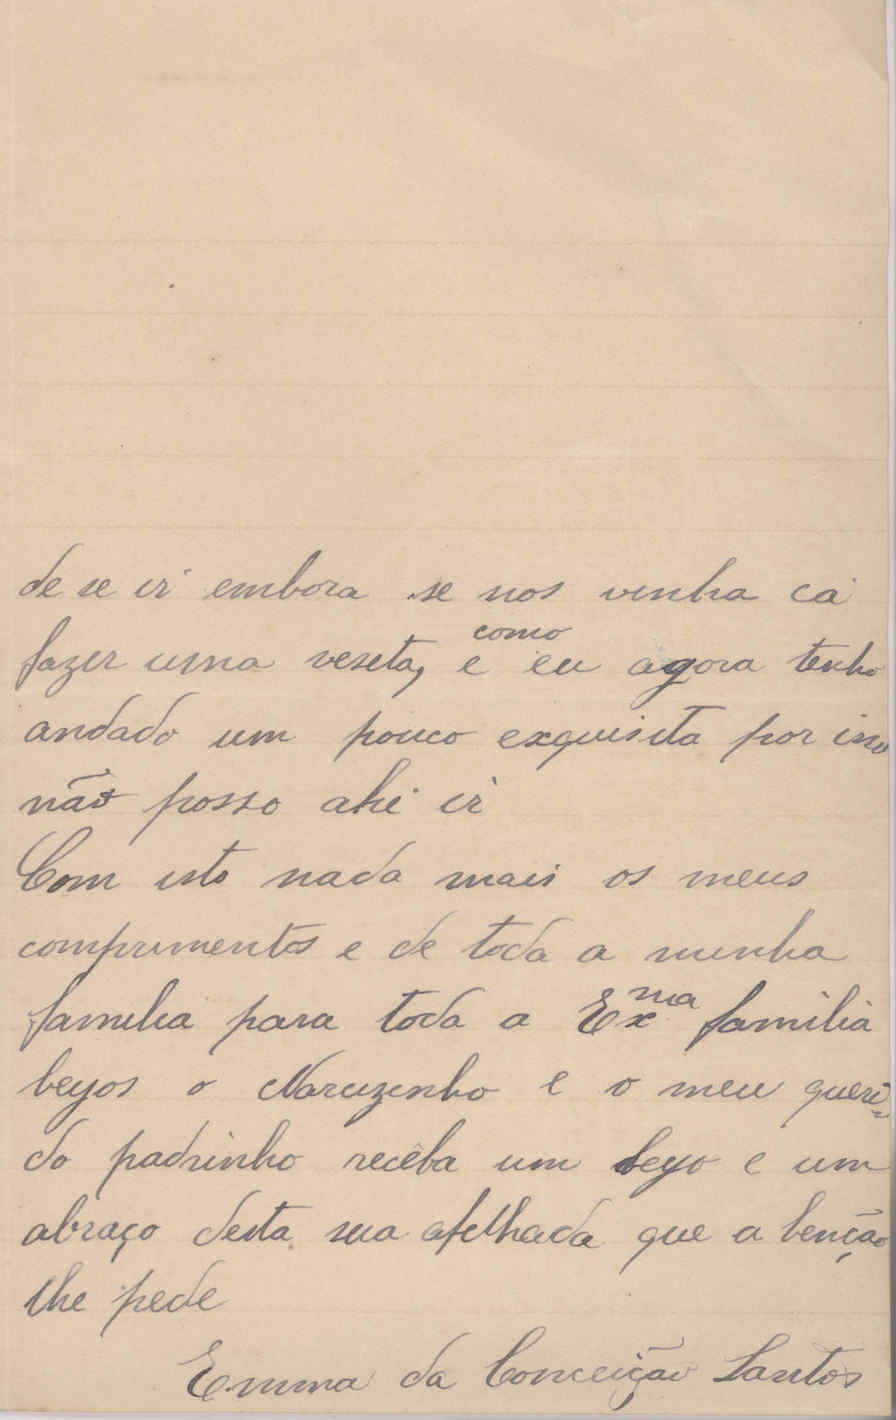 de se ir embora se nos vinha cá
fazer uma veseta, e como eu agora tenho
andado um pouco exquisita por isso
não posso ahi ir
Com isto nada mais os meus
comprimentos e de toda a minha
familia para toda a Exma familia
beyos o e o meu queri-
do padrinho recêba um beyo e um
abraço desta sua afelhada que a benção
lhe pede
Emma da Conceição Santos